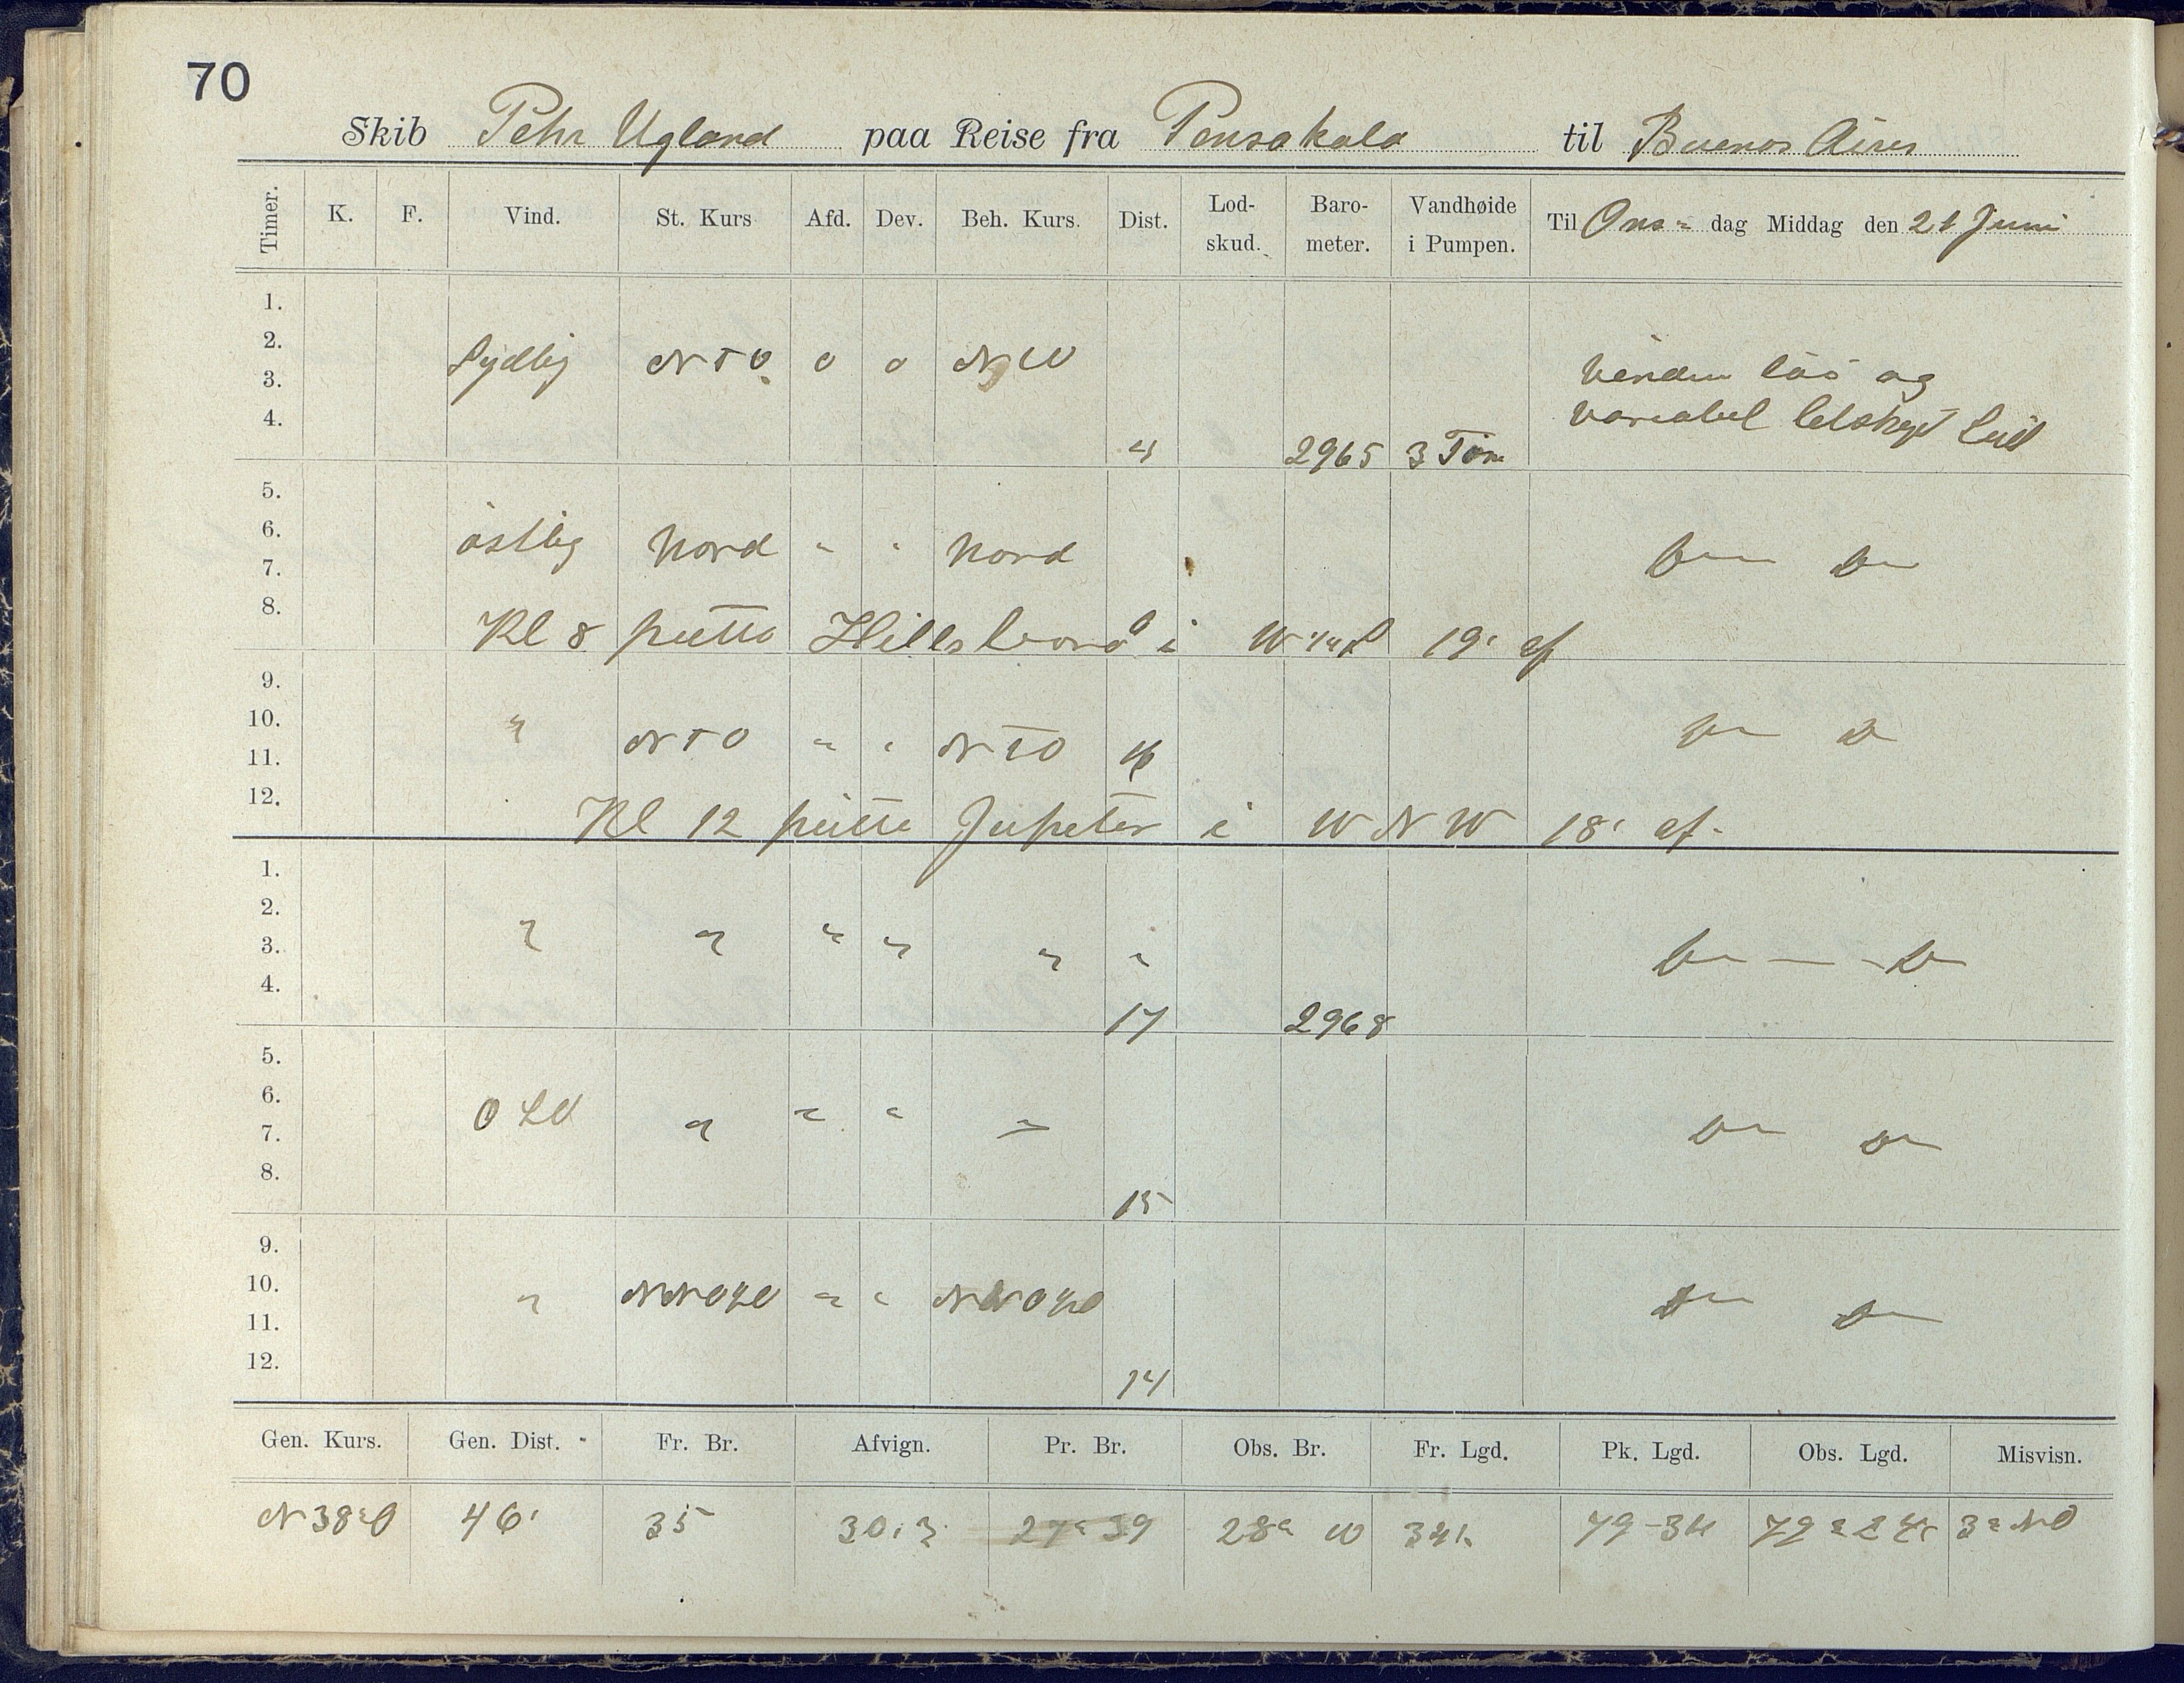 70
Skib Pehr Ugland paa Reise fra Pensakola til Buenos Aires
Timer. K. F. Vind. St. Kurs Afd. Dev. Beh. Kurs. Dist. Lod-skud. Baro-meter. Vandhøide i Pumpen. Til Ons- dag Middag den 21 Juni
1.
2.
Sydlig NTO 0 0
3.
vinden løs og
4.
variabel letskyet
4 2965 3 Tom
5.
6.
østlig Nord " " Nord
7.
8.
Kl 8 peitte Hillsboro i W 19' af
9.
10.
" NTO " " NTO
11.
12.
Kl 12 peitte Jupeter i WNW 18' af-
1.
2.
" " " " " "
3.
4.
17 2968
5.
6.
" " " "
7.
8.
15
9.
10.
" " "
11.
12.
14
Gen. Kurs. Gen. Dist. Fr. Br. Afvign. Pr. Br. Obs. Br. Fr. Lgd. Pk. Lgd. Obs. Lgd. Misvisn.
N 38° O 46' 35 30,3 27° 39 28° 79-34 3° NO